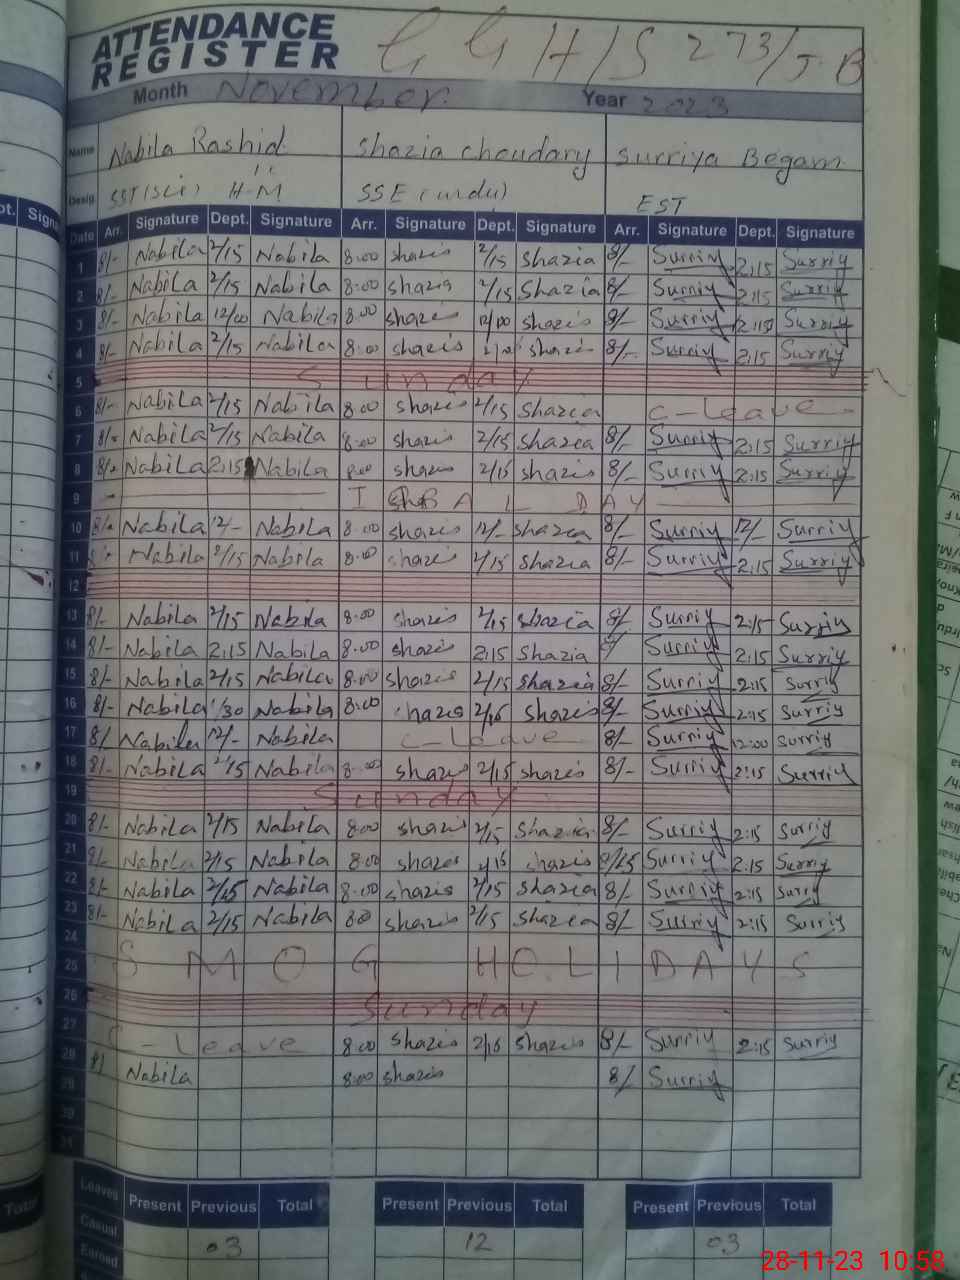 ATTENDANCE
REGISTER
G G H/S 273/J.B
Month November Year 2023
Name Nabila Rashid Shazia choudary Surriya Begam
Desig. SST(Sci) H-M SSE (urdu) EST
Date Arr. Signature Dept. Signature Arr. Signature Dept. Signature Arr. Signature Dept. Signature
1 8/- Nabila 2/15 Nabila 8:00 shazia 2/15 Shazia 8/- Surriy 2:15 Surriy
2 8/- Nabila 2/15 Nabila 8:00 shazia 2/15 Shazia 8/- Surriy 2:15 Surriy
3 8/- Nabila 12/00 Nabila 8:00 shazia 12/00 shazia 8/- Surriy 12:15 Surriy
4 8/- Nabila 2/15 Nabila 8:00 shazia shazia 8/- Surriy 2:15 Surriy
5 Sunday
6 8/- Nabila 2/15 Nabila 8:00 shazia 2/15 Shazia C-Leave
7 8/- Nabila 2/15 Nabila 8:00 shazia 2/15 Shazia 8/- Surriy 2:15 Surriy
8 8/- Nabila 2:15 Nabila 8:00 shazia 2/15 shazia 8/- Surriy 2:15 Surriy
9 IQBAL DAY
10 8/- Nabila 12/- Nabila 8:00 shazia 12/- shazia 8/- Surriy 12/- Surriy
11 Nabila 2/15 Nabila 8:00 shazia 2/15 shazia 8/- Surriy 2:15 Surriy
12
13 8/- Nabila 2/15 Nabila 8:00 shazia 2/15 shazia 8/- Surriy 2:15 Surriy
14 8/- Nabila 2:15 Nabila 8:00 shazia 2:15 Shazia Surriy 2:15 Surriy
15 8/- Nabila 2/15 Nabila 8:00 shazia 2/15 shazia 8/- Surriy 2:15 Surriy
16 8/- Nabila 1/30 Nabila 8:00 shazia 2/15 shazia 8/- Surriy 2:15 Surriy
17 8/- Nabila 12/- Nabila C-Leave 8/- Surriy 12:00 Surriy
18 8/- Nabila 2/15 Nabila 8:00 shazia 2/15 shazia 8/- Surriy 2:15 Surriy
19 Sunday
20 8/- Nabila 2/15 Nabila 8:00 shazia 2/15 Shazia 8/- Surriy 2:15 Surriy
21 8/- Nabila 2/15 Nabila 8:00 shazia 2/15 shazia Surriy 2:15 Surriy
22 8/- Nabila 2/15 Nabila 8:00 shazia 2/15 shazia 8/- Surriy 2:15 Surriy
23 8/- Nabila 2/15 Nabila 8:00 shazia 2/15 shazia 8/- Surriy 2:15 Surriy
24
25 SMOG HOLIDAYS
26 Sunday
27 C-Leave 8:00 shazia 2/15 shazia 8/- Surriy 2:15 Surriy
28 8/ Nabila 8:00 shazia 8/ Surriy
29
30
31
Leaves Present Previous Total Present Previous Total Present Previous Total
Casual 03 12 03
Earned
28-11-23 10:58